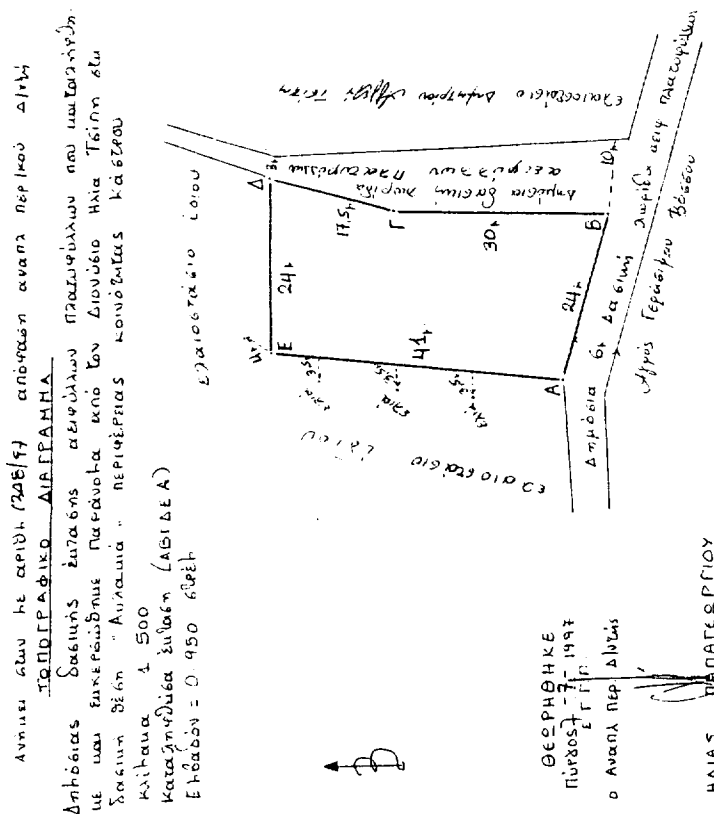 Ανήκει στην με αριθμ. (248/97) απόφαση αναπλ περ/κού Δ/ντή
ΤΟΠΟΓΡΑΦΙΚΟ ΔΙΑΓΡΑΜΜΑ
Δημόσιας δασικής έκτασης αειφύλλων πλατυφύλλων που καταλήφθη
κε και εκχερσώθηκε παράνομα από τον Διονύσιο Ηλία Τσίπη στη
δασική θέση "Αυλακιά" περιφέρειας κοινότητας Κάστρου
Κλίμακα 1 500
Καταληφθείσα έκταση (ΑΒΓΔΕΑ)
Εμβαδόν = 0.950 στρέμ
Ελαιοστάσιο ίδιου
Ελαιοστάσιο Δημητρίου Τσίπη
Δημόσια δασική λωρίδα
αειφύλλων πλατυφύλλων
Δ
3μ
17,5μ
Γ
30μ
Β
10μ
24μ
Ε
4μ
3,5μ
ελιά
3,5μ
ελιά
3,5μ
ελιά
41μ
24μ
Α
Ελαιοστάσιο ίδιου
Δημόσια 6μ Δασική λωρίδα αειφ πλατυφύλλων
Αγρός Γεράσιμου Βέσσου
Β
ΘΕΩΡΗΘΗΚΕ
Πύργος 7-7-1997
Ο Αναπλ περ. Δ/ντής
ΗΛΙΑΣ ΠΑΠΑΓΕΩΡΓΙΟΥ